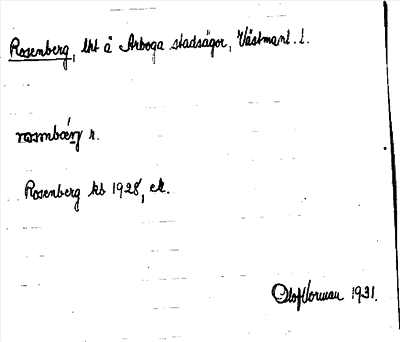 Rosenberg, lht å Arboga stadsägor, Västmanl. l.
r.
Rosenberg kb 1928, ek.
Olof Vorman 1931.